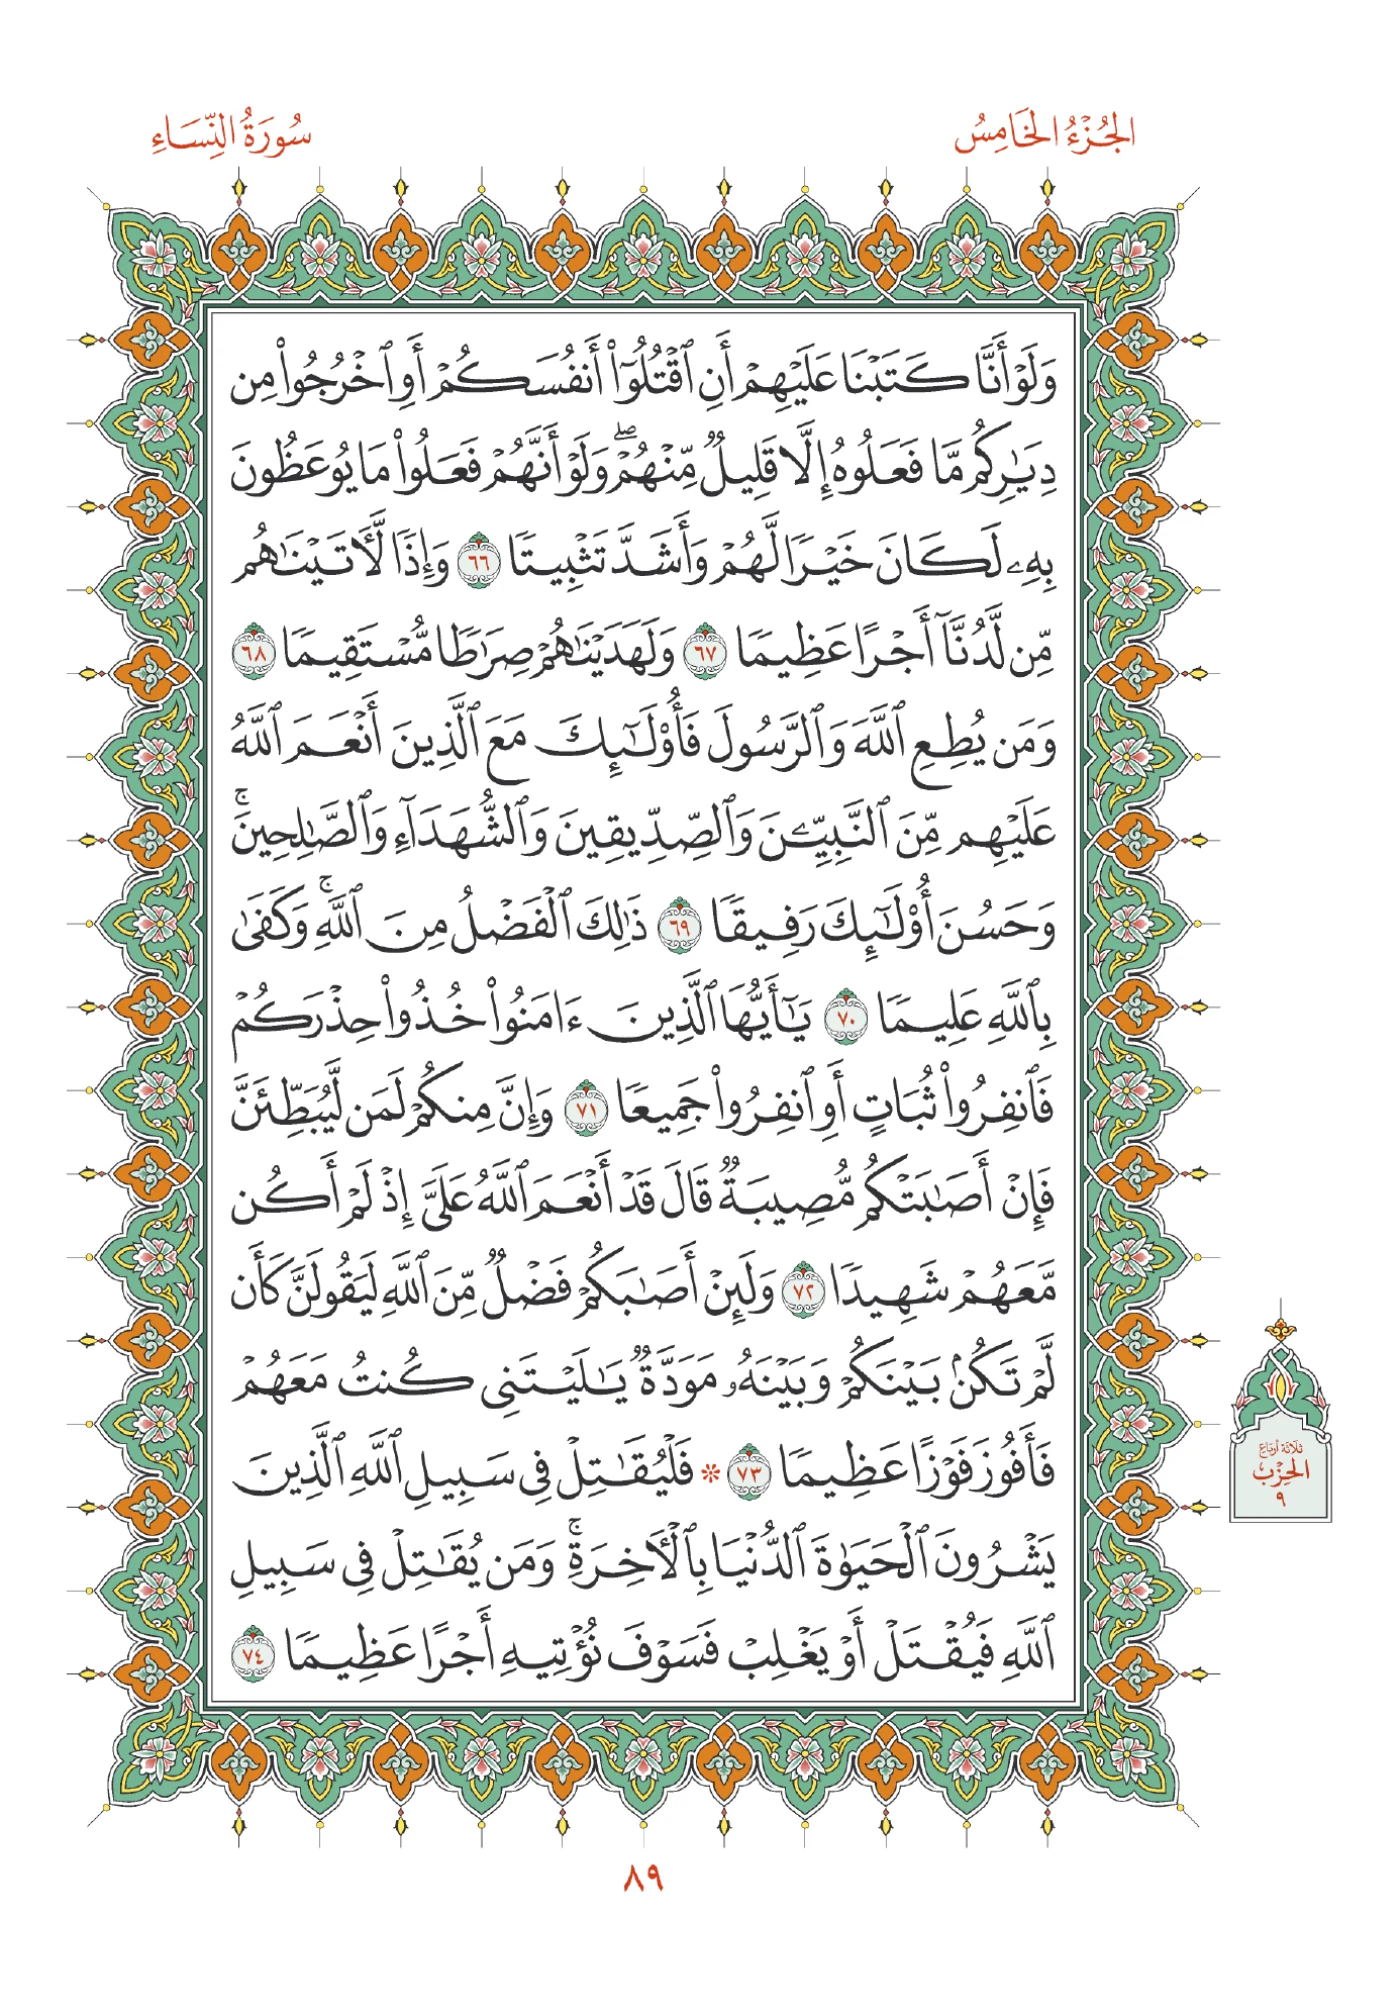 الجُزْءُ الخَامِسُ
سُورَةُ النِّسَاءِ
وَلَوْ أَنَّا كَتَبْنَا عَلَيْهِمْ أَنِ ٱقْتُلُوٓا۟ أَنفُسَكُمْ أَوِ ٱخْرُجُوا۟ مِن
دِيَـٰرِكُم مَّا فَعَلُوهُ إِلَّا قَلِيلٌ مِّنْهُمْ ۖ وَلَوْ أَنَّهُمْ فَعَلُوا۟ مَا يُوعَظُونَ
بِهِۦ لَكَانَ خَيْرًا لَّهُمْ وَأَشَدَّ تَثْبِيتًا ٦٦ وَإِذًا لَّـَٔاتَيْنَـٰهُم
مِّن لَّدُنَّآ أَجْرًا عَظِيمًا ٦٧ وَلَهَدَيْنَـٰهُمْ صِرَٰطًا مُّسْتَقِيمًا ٦٨
وَمَن يُطِعِ ٱللَّهَ وَٱلرَّسُولَ فَأُو۟لَـٰٓئِكَ مَعَ ٱلَّذِينَ أَنْعَمَ ٱللَّهُ
عَلَيْهِم مِّنَ ٱلنَّبِيِّـۧنَ وَٱلصِّدِّيقِينَ وَٱلشُّهَدَآءِ وَٱلصَّـٰلِحِينَ ۚ
وَحَسُنَ أُو۟لَـٰٓئِكَ رَفِيقًا ٦٩ ذَٰلِكَ ٱلْفَضْلُ مِنَ ٱللَّهِ ۚ وَكَفَىٰ
بِٱللَّهِ عَلِيمًا ٧٠ يَـٰٓأَيُّهَا ٱلَّذِينَ ءَامَنُوا۟ خُذُوا۟ حِذْرَكُمْ
فَٱنفِرُوا۟ ثُبَاتٍ أَوِ ٱنفِرُوا۟ جَمِيعًا ٧١ وَإِنَّ مِنكُمْ لَمَن لَّيُبَطِّئَنَّ
فَإِنْ أَصَـٰبَتْكُم مُّصِيبَةٌ قَالَ قَدْ أَنْعَمَ ٱللَّهُ عَلَىَّ إِذْ لَمْ أَكُن
مَّعَهُمْ شَهِيدًا ٧٢ وَلَئِنْ أَصَـٰبَكُمْ فَضْلٌ مِّنَ ٱللَّهِ لَيَقُولَنَّ كَأَن
لَّمْ تَكُنۢ بَيْنَكُمْ وَبَيْنَهُۥ مَوَدَّةٌ يَـٰلَيْتَنِى كُنتُ مَعَهُمْ
فَأَفُوزَ فَوْزًا عَظِيمًا ٧٣ * فَلْيُقَـٰتِلْ فِى سَبِيلِ ٱللَّهِ ٱلَّذِينَ
يَشْرُونَ ٱلْحَيَوٰةَ ٱلدُّنْيَا بِٱلْـَٔاخِرَةِ ۚ وَمَن يُقَـٰتِلْ فِى سَبِيلِ
ٱللَّهِ فَيُقْتَلْ أَوْ يَغْلِبْ فَسَوْفَ نُؤْتِيهِ أَجْرًا عَظِيمًا ٧٤
ثلاثة أرباع
الحزب
٩
٨٩